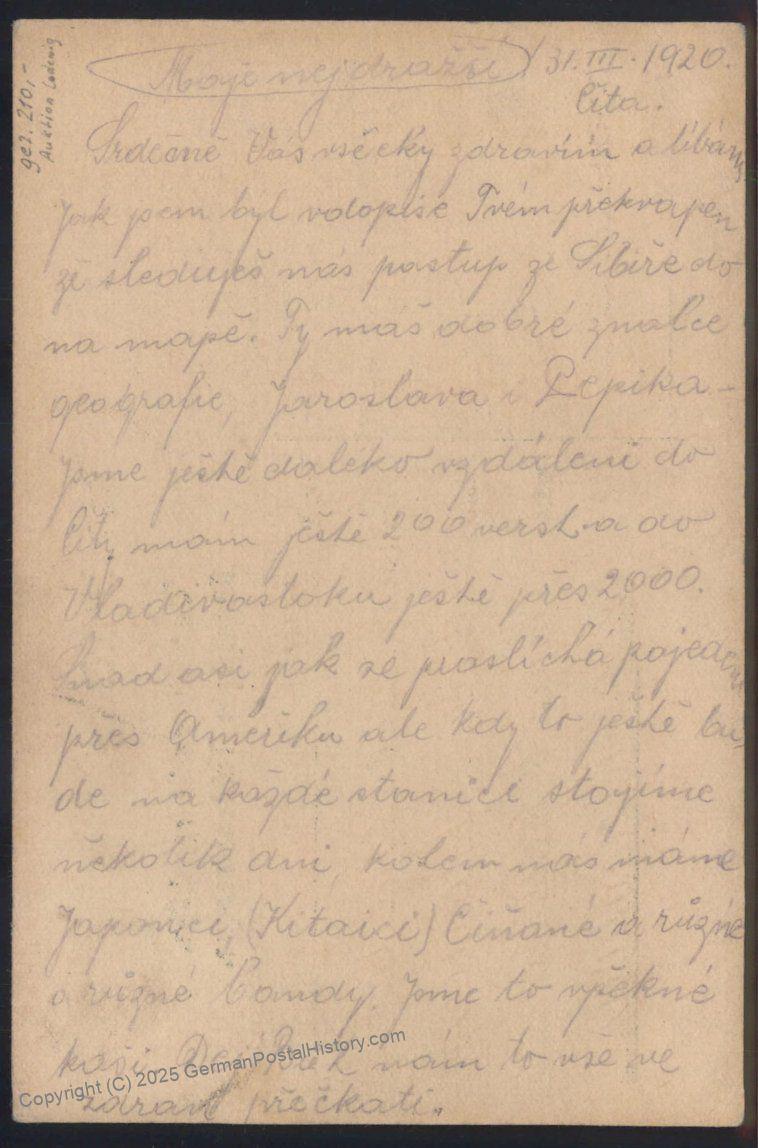 Moje nejdražší! 31. III. 1920.
Čita.
Srdečně Vás všecky zdravím a líbám
Jak jsem byl vdopise Tvém překvapen
že sleduješ nás postup ze Sibiře do
na mapě. Ty máš dobré znalce
geografie, Jaroslava i Pepika -
Jsme ještě daleko vzdáleni do
Čity mám ještě 200 verst. a do
Vladivostoku ještě přes 2000.
Snad asi jak se proslíchá pojedeme
přes Ameriku ale kdy to ještě bu-
de na každé stanici stojíme
několik dní, kolem nás máme
Japonci, (Kitaici) Číňané a různé
a různé bandy. Jsme to vpěkné
kaši. Dej Bůh nám to vše ve
zdraví přečkati.
gez. 210,-
Auktion Ludwig
Copyright (C) 2025 GermanPostalHistory.com